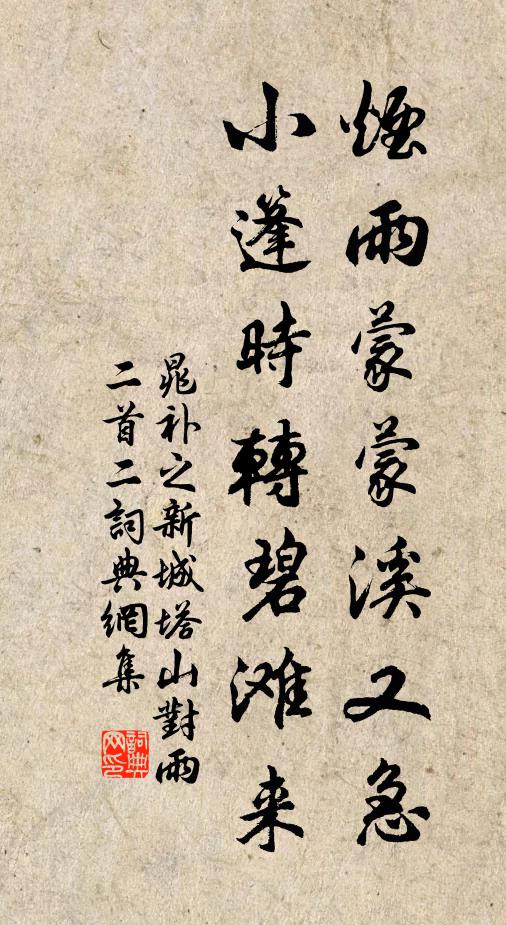 煙雨蒙蒙溪又急
小篷時轉碧滩来
晁补之新城塔山對雨
二首二詞典網集
詞典网印